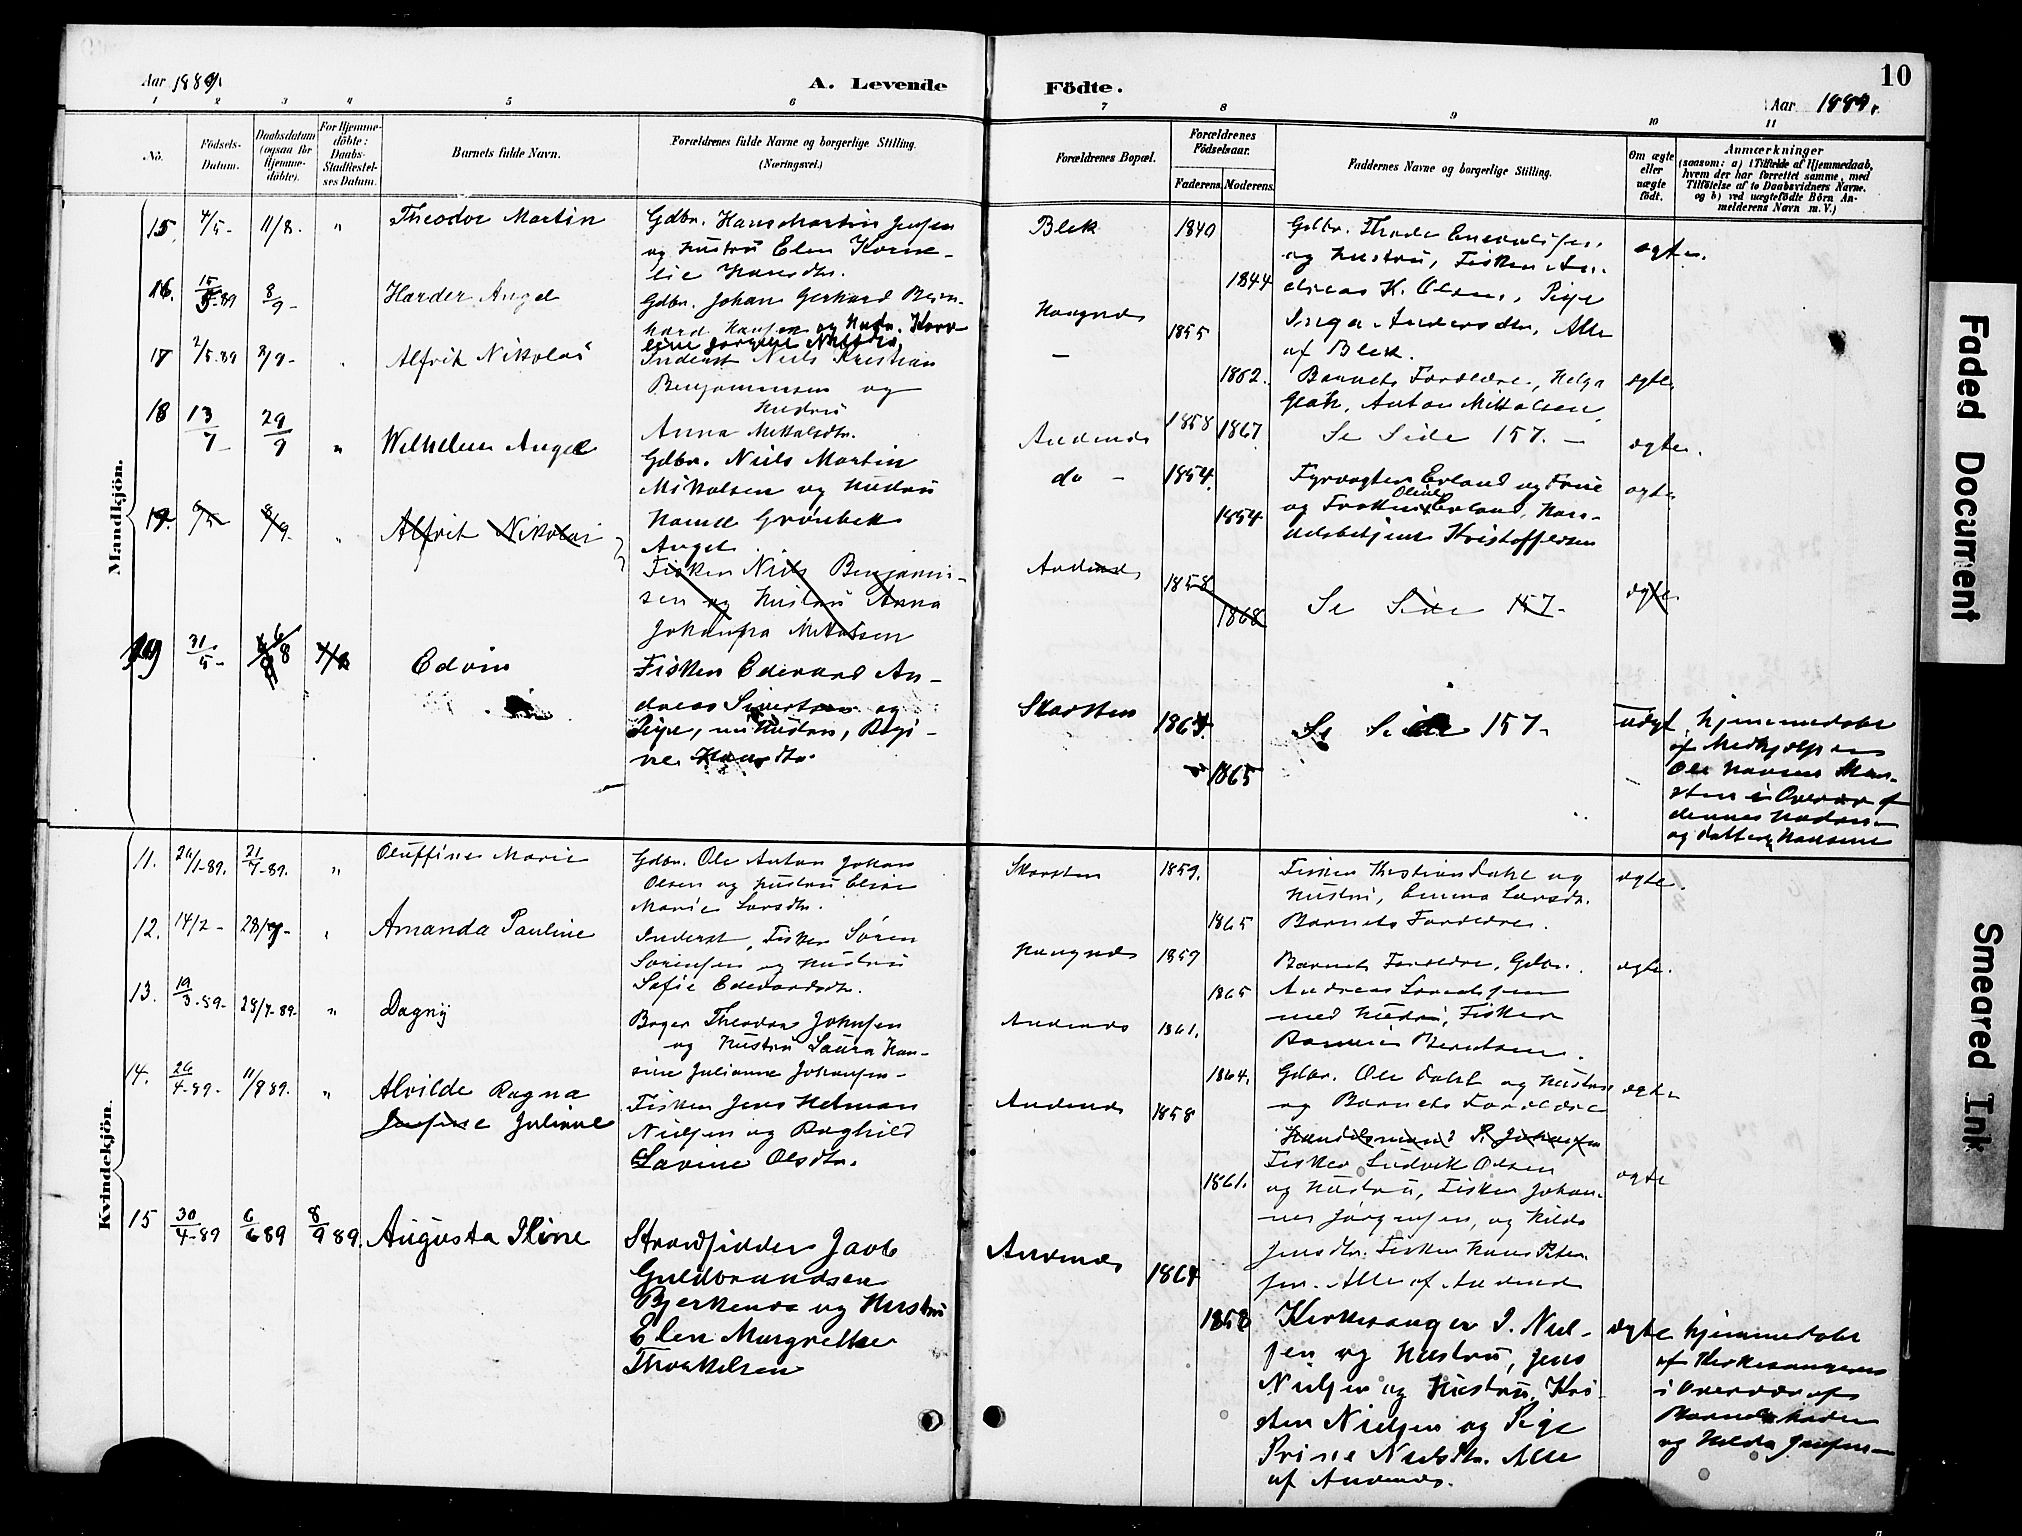 Aar 1889.
A. Levende
Födte.
10
Aar 1889.
1 2 3 4 5 6 7 8 9 10 11
No.
Födsels-
Datum.
Daabsdatum
(ogsaa for
Hjemme-
döbte).
For Hjemme-
döbte:
Daabs-
Stadfæstel-
ses Datum.
Barnets fulde Navn.
Forældrenes fulde Navne og borgerlige Stilling.
(Næringsvei.)
Forældrenes Bopæl.
Forældrenes
Födselsaar.
Faderens.
Moderens.
Faddernes Navne og borgerlige Stilling.
Om ægte
eller
uægte
født.
Anmærkninger
(saasom: a) i Tilfælde af Hjemmedaab,
hvem der har forrettet samme, med
Tilföielse af to Daabsvidners Navne.
og b) ved uægtefödte Börn An-
melderens Navn m. V.)
Mandkjön.
15. 4/5- 11/8. " Theodor Martin
Gdbr. Hans Martin Jensen
og Hustru Elen Korne-
lie Hansdtr.
Blek 1840
1844
Gdbr. Thode
og Hustru, Fisker An-
dreas K. Olsen, Pige
Inga Andersdtr. Alle
af Blek.
ægte.
16. 15/5-89 8/9- Harder Angel
Gdbr. Johan Gerhard Bern-
hard Hansen og Hustr. Karo-
line
Haugnes 1855
1862.
Barnets Forældre, Helga
Anton Mikalsen
ægte
17 2/5.89 8/9- Alfrit Nikolai
Inderst Niels Kristian
Benjaminsen og
Hustru
Anna Mikalsdtr.
— 1858 1867
Se Side 157. —
ægte.
18 13/7- 29/9 " Wilhelm Angel
Gdbr. Niels Martin
Mikalsen og Hustru
Hansine Grönbek
Angel
Andenes
do - 1854.
1854
Fyrvogter Erland og Frue
og Frøken Oline Erland, Han-
delsbetjent Kristoffersen
ægte
19. 6/5 8/9 " Alfrit Nikolai
Fisker Niels Benjamin-
sen og Hustru Anna
Johanna Mikalsen
Andenes 1858
1868
Se Side 157-
ægte.
19 31/5- 8 Edvin
Fisker Edevard An-
dreas Sivertsen og
Pige, nu Hustru, Regi-
ne Hansdtr.
Skarsten 1864.
1865
Se Side 157-
uægt.
hjemmedøbt
af Medhjelperen
Ole Hansen Skar-
sten i Overvær af
dennes Hustru
og datter Hansine
Kvindekjön.
11. 26/1-89. 21/4-89. " Oluffine Marie
Gdbr. Ole Anton Johan
Olsen og Hustru Eline
Marie Larsdtr.
Skarsten 1859.
1865
Fisker Kristian Dahl og
Hustru, Emma Larsdtr.
Barnets Forældre.
ægte.
12. 14/2- 28/7- " Amanda Pauline
Inderst, Fisker Sören
Sörensen og Hustru
Sofie Edevardsdtr.
Haugnes 1859
1865
Barnets Forældre, Gdbr.
Andreas
med Hustru, Fisker
Berntsen.
ægte.
13. 19/3-89- 28/7-89- " Dagny
Bager Theodor Johnsen
og Hustru Laura Han-
sine Julianne Johansen-
Andenes 1861.
1864.
Gdbr. Ole Dahl og Hustru
og Barnets Forældre
ægte
14. 26/4-89- 11/8 89. " Alvilde Ragna
Josfine Julianne
Fisker Jens Helman
Nielsen og Raghild
Lavine Olsdtr.
Andenes 1858
1861.
Handelsmand P. Johansen
Fisker Ludvik Olsen
og Hustru, Fisker Johan-
nes Jörgensen, og Hilda
Jensdtr. Fisker Hans Peter-
sen. Alle af Andenes
ægte
15 30/4-89 6/6 89 8/9 89. Augusta Iline
Strandsidder Jacob
Guldbrandsen
Bjerkende og Hustru
Elen Margrethe
Thorkelsen
Andenes 1864
1858
Kirkesanger I. Niel-
sen og Hustru, Jens
Nielsen og Hustru, Kri-
sten Nielsen og Pige
Trine Nielsdtr. Alle
af Andenes.
ægte
hjemmedøbt
af Kirkesangeren
i Overvær af
Barnets Fader
og Hilda Jensen
Faded Document
Smeared Ink